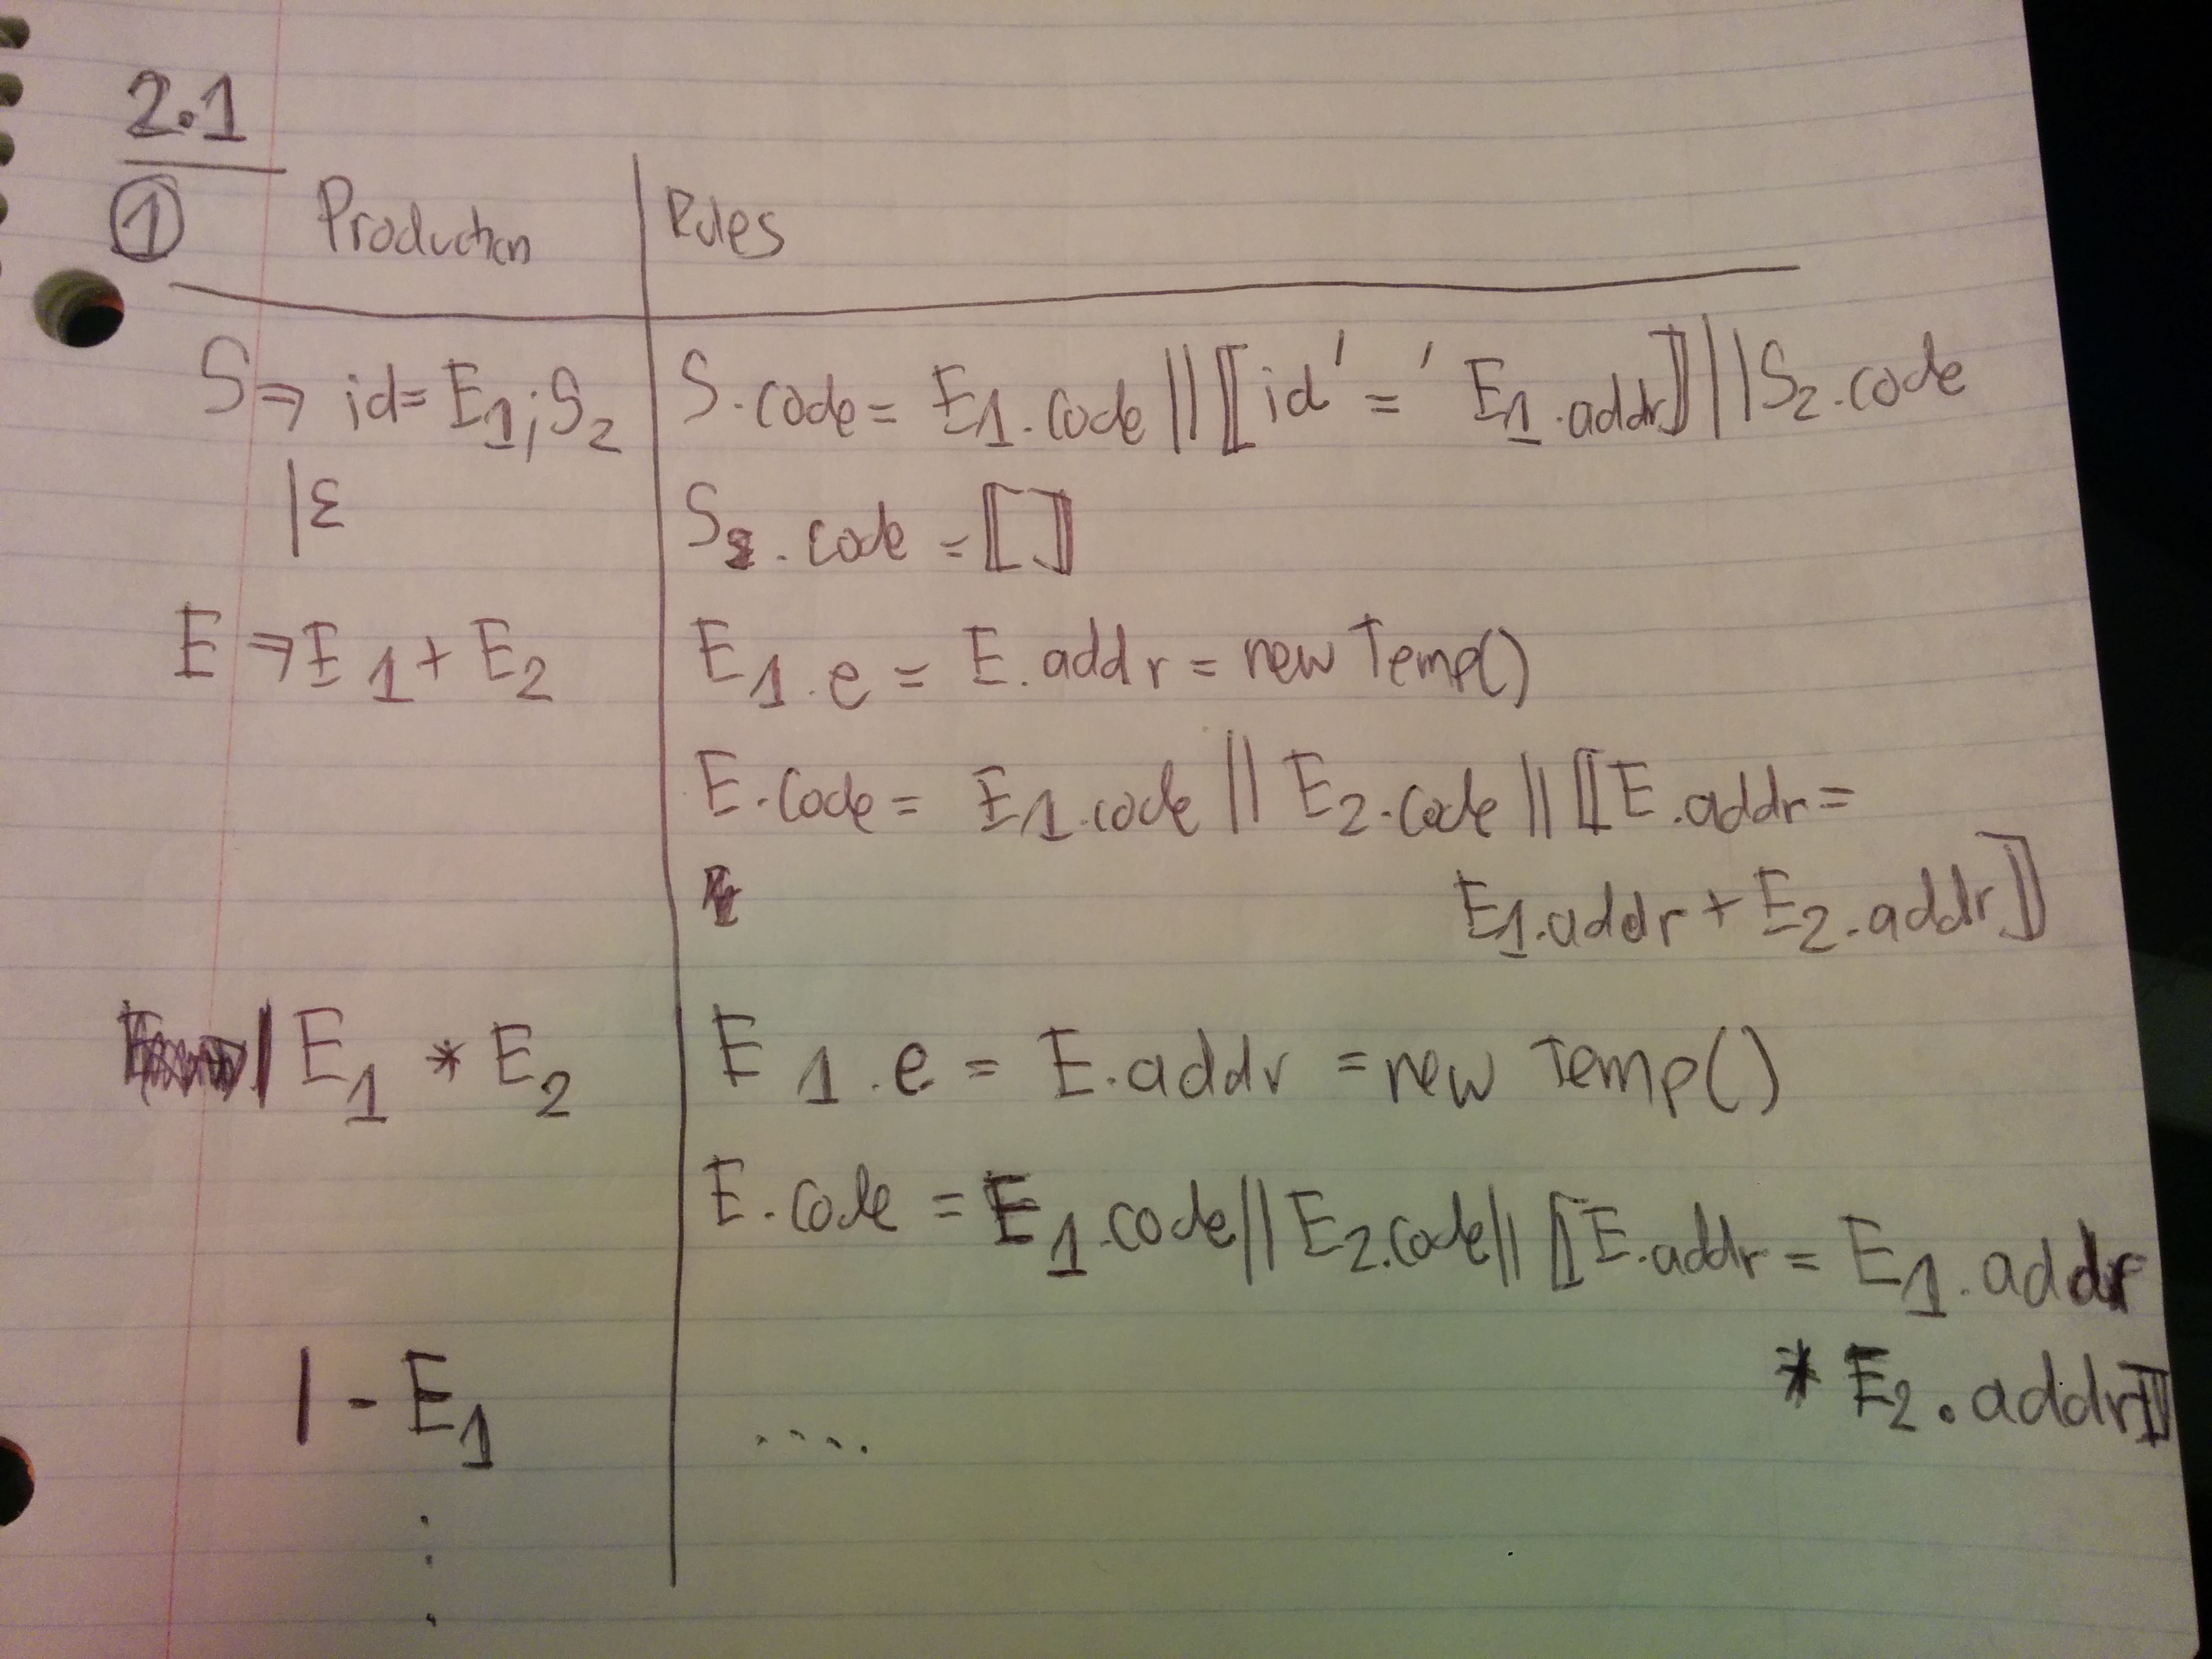 2.1
① Production Rules
S → id = E₁; S₂ S.code = E₁.code || ⟦id '=' E₁.addr⟧ || S₂.code
| ε S.code = ⟦ ⟧
E → E₁ + E₂ E₁.e = E.addr = new Temp()
E.code = E₁.code || E₂.code || ⟦E.addr =
E₁.addr + E₂.addr⟧
| E₁ * E₂ E₁.e = E.addr = new Temp()
E.code = E₁.code || E₂.code || ⟦E.addr = E₁.addr
* E₂.addr⟧
| - E₁ ....